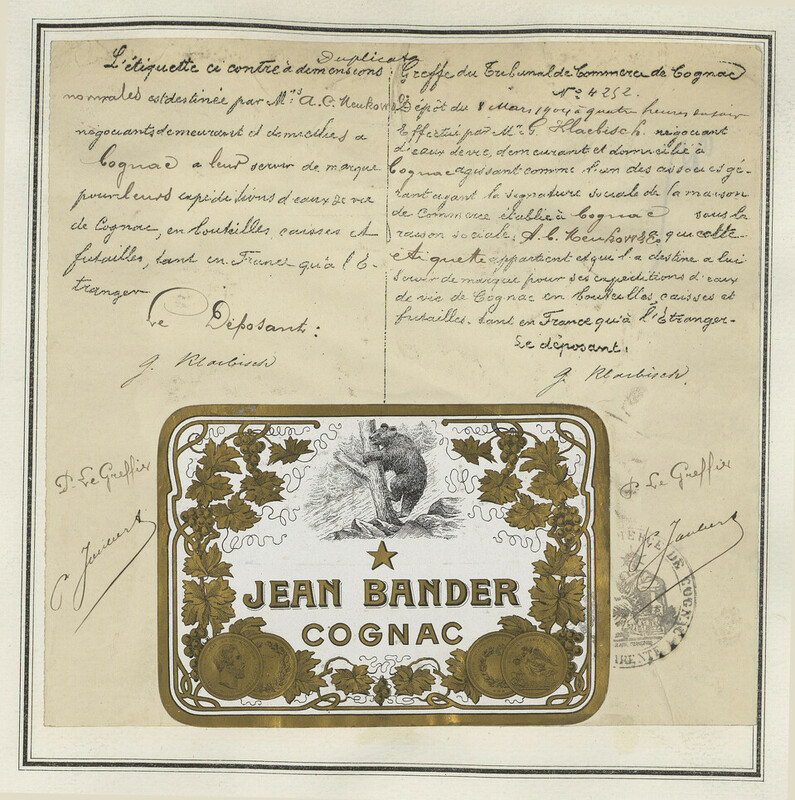 Duplicata
L'étiquette ci contre à dimensions
normales est destinée par Mrs A.C. Meukow
négociants demeurant et domiciliés à
Cognac a leur servir de marque
pour leurs expéditions d'eaux de vie
de Cognac, en bouteilles, caisses et
futailles, tant en France qu'à l'É-
tranger
Le Déposant:
G. Klaebisch
Greffe du Tribunal de Commerce de Cognac
No 4252.
Dépôt du 8 Mars 1904 à quatre heures du soir
Effectué par Mr G. Klaebisch. négociant
d'eaux de vie, demeurant et domicilié à
Cognac agissant comme l'un des associés gé-
rant ayant la signature sociale de la maison
de Commerce établie à Cognac sous la
raison sociale, A.C. Meukow & Co a qui cette
étiquette appartient et qui l'a destine a lui
servir de marque pour ses expéditions d'eaux
de vie de Cognac en bouteilles, caisses et
futailles. tant en France qu'à l'Etranger-
Le déposant:
G. Klaebisch.
P. Le Greffier
P. Le Greffier
JEAN BANDER
COGNAC
DE COGNAC